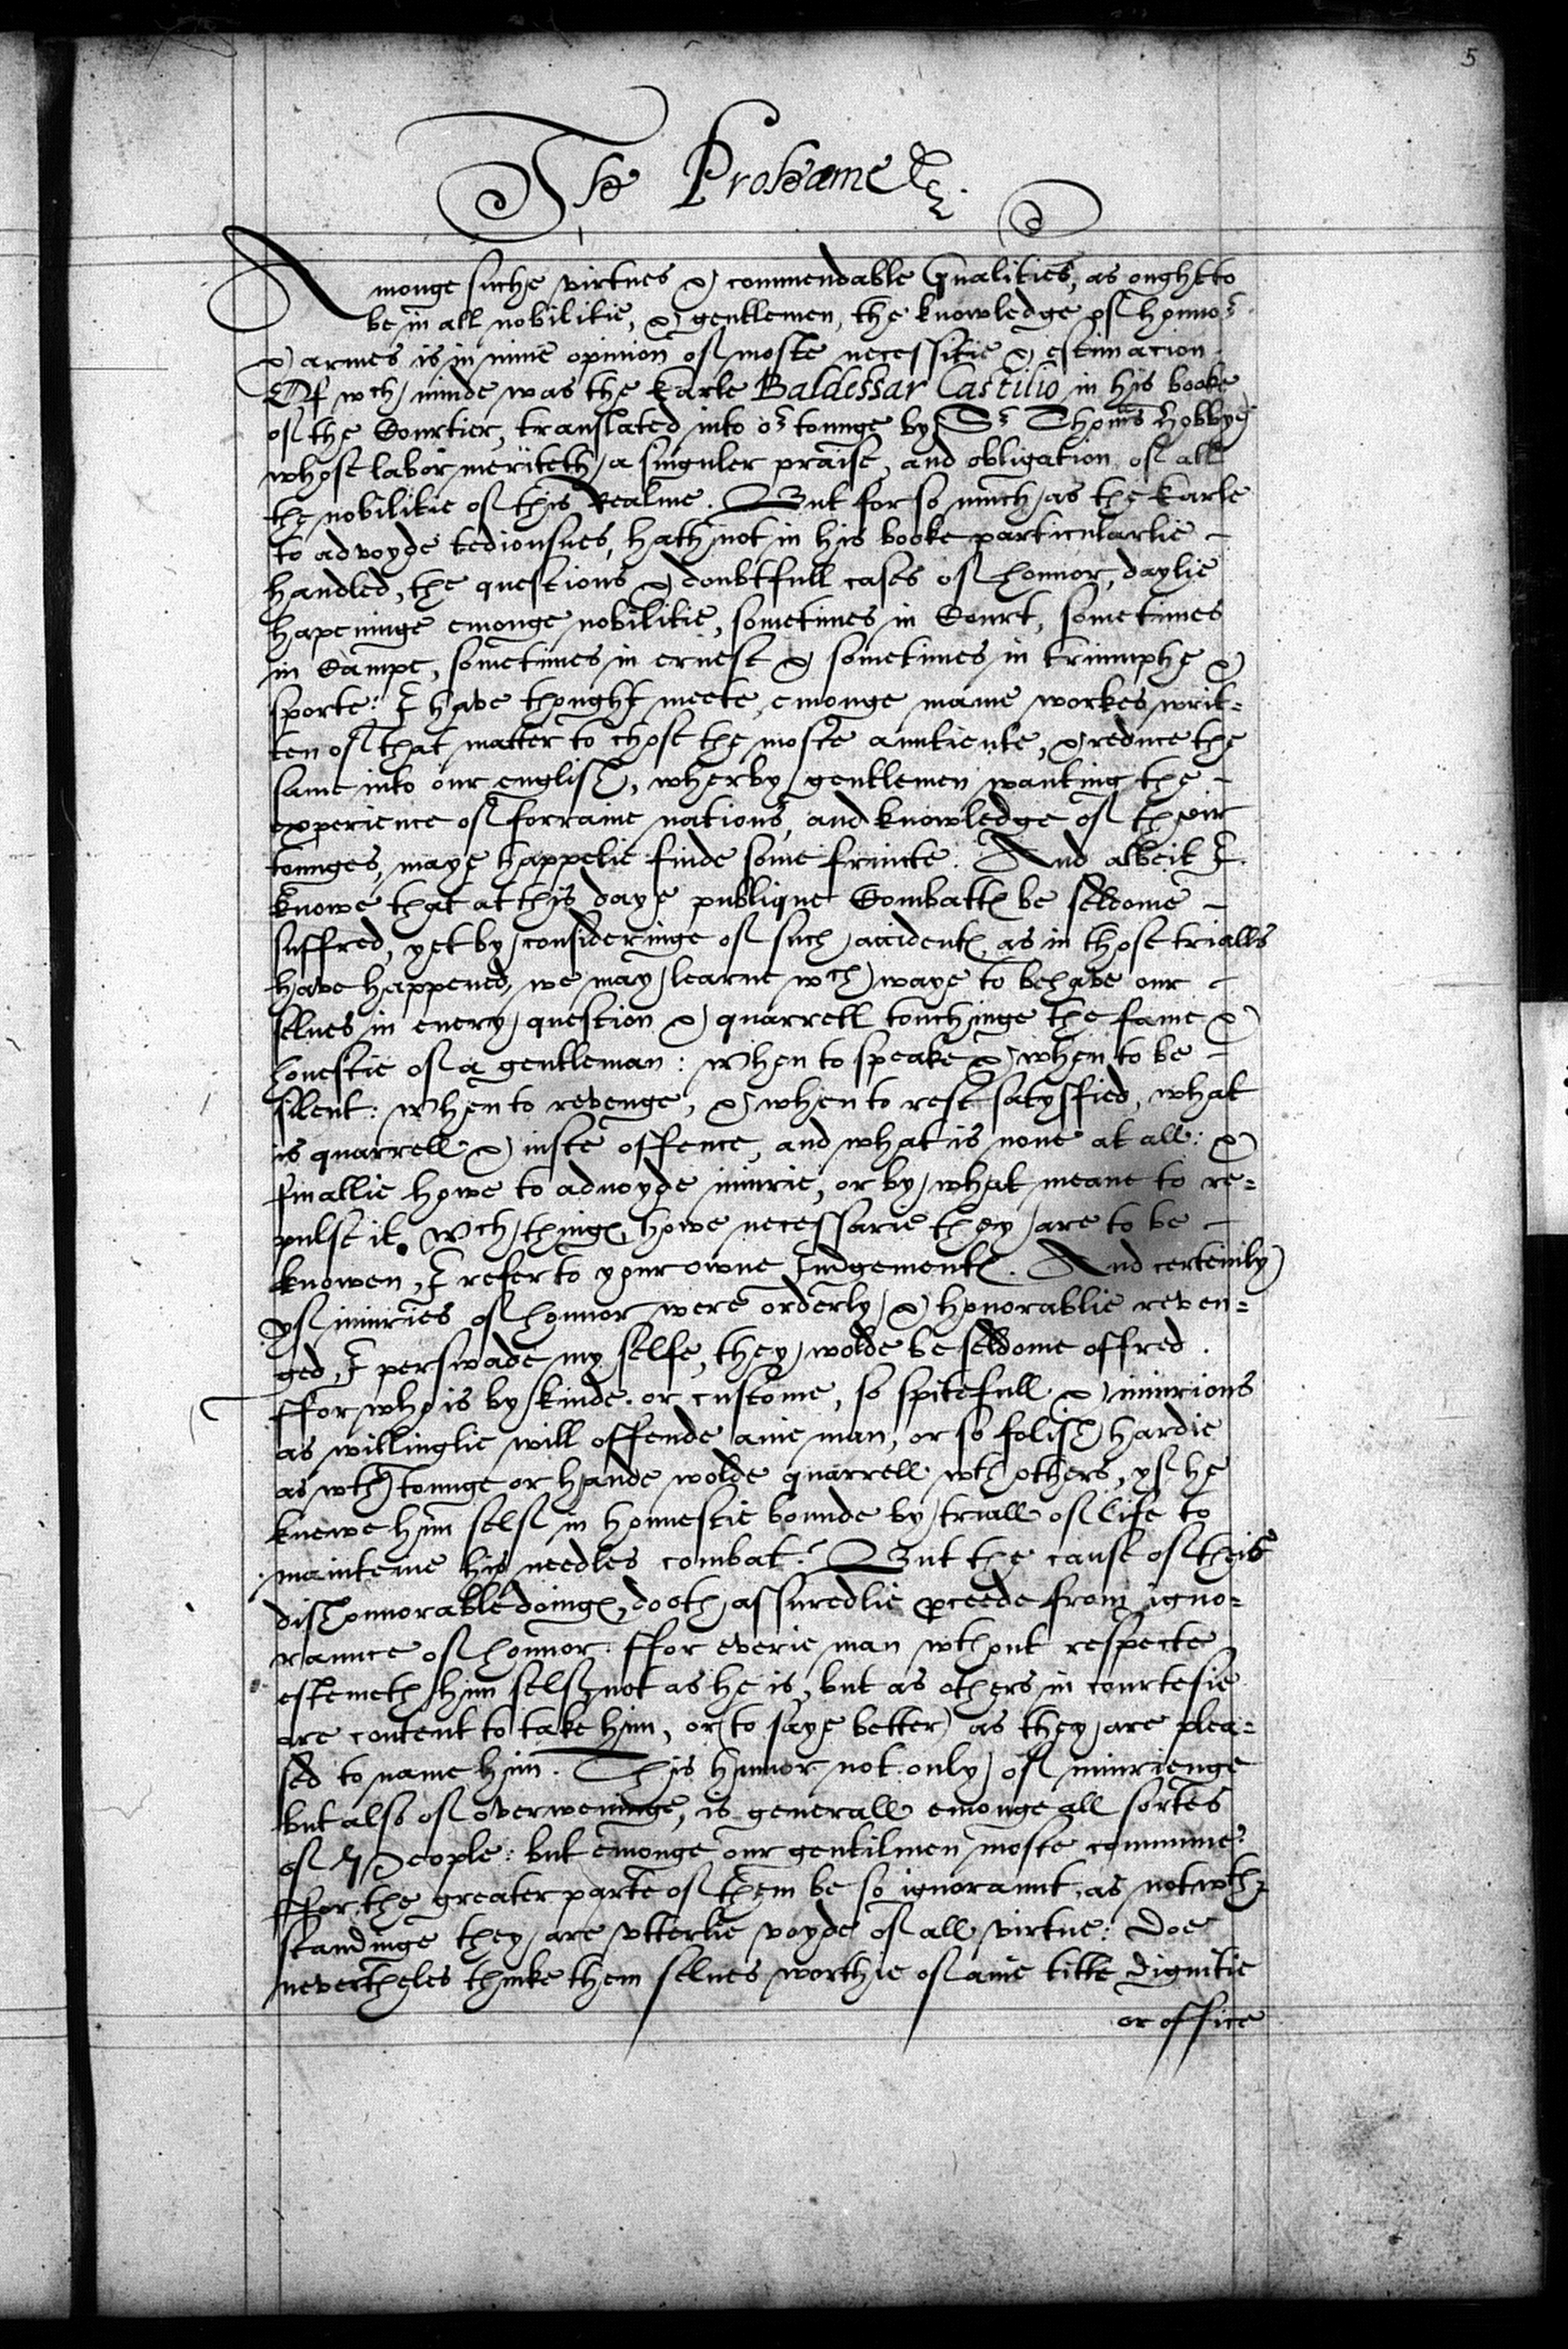 5
The Prohæme
Amonge suche virtues & commendable Qualities, as ought to
be in all nobilitie, & gentlemen, the knowledge of honnor
& armes is in mine opinion of moste necessitie & estimacion.
Of wch minde was the Earle Baldessar Castilio in his booke
of the Courtier, translated into or tounge by Sr Thoms Hobbye
whose labor meriteth a singuler praise, and obligation of all
the nobilitie of this Realme. But for so much as the Earle
to advoyde tediousnes, hath not in his booke particularlie -
handled, the questions & doubtfull cases of honnor, daylie
hapeninge emonge nobilitie, sometimes in Court, sometimes
in Campe, sometimes in ernest & sometimes in triumphe &
sporte: I have thought meete, emonge manie workes writ=
ten of that matter to chose the moste auntiente, & reduce the
same into our english, wherby gentlemen wanting the -
experience of forraine nations, and knowledge of their
tounges, maye happelie finde some fruicte. And albeit I
knowe that at this daye publique Combattes be seldome -
suffred, yet by consideringe of such accidentes, as in those trialls
have happened, we may learne wch waye to behave our -
selues in euery question & quarrell touchinge the fame &
honestie of a gentleman: When to speake & when to be -
silent: When to revenge, & when to rest satysfied, what
is quarrell & iuste offence, and what is none at all: &
finallie howe to aduoyde iniurie, or by what meane to re=
pulse it. Wch thinges, howe necessarie they are to be -
knowen, I refer to your owne Iudgementes. And certeinly
yf iniuries of honnor were orderly & honorablie reven=
ged, I perswade my selfe, they wolde be seldome offred.
ffor who is by kinde or custome, so spitefull & iniurious
as willinglie will offende anie man, or so folish hardie
as wth tounge or hande wolde quarrell wth others, yf he
knewe him self in honnestie bounde by triall of life to
mainteine his needles combat? But the cause of theis
dishonnorable doinges, dooth assuredlie proceede from igno=
raunce of honnor: ffor everie man wthout respecte
estemeth him self, not as he is, but as others in courtesie
are content to take him, or (to saye better) as they are plea=
sed to name him. This humor not only of iniurienge
but also of overweninge, is generall emonge all sortes
of People: but emonge our gentilmen moste commune:
ffor the greater parte of them be so ignoraunt, as notwth=
standinge they are vtterlie voyde of all virtue: Doe
nevertheles thinke them selues worthie of anie title dignitie
or office